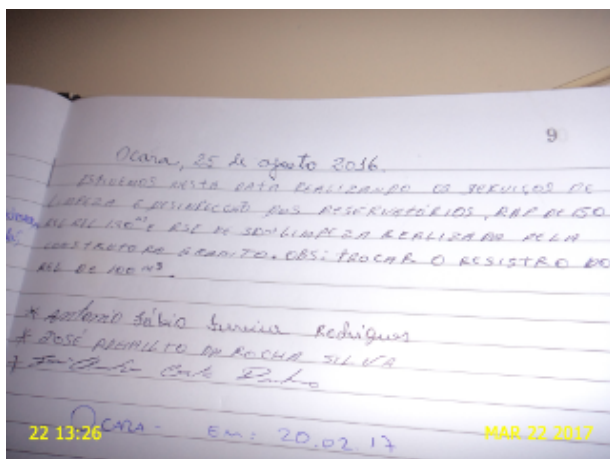 9
Ocara, 25 de agosto 2016.
ESTIVEMOS NESTA DATA REALIZANDO OS SERVIÇOS DE
LIMPEZA E DESINFECÇÃO DOS RESERVATÓRIOS, RAP DE 150
LIMPEZA REALIZADA PELA
CONSTRUTORA GRANITO. OBS: TROCAR O REGISTRO DO
REL DE 100 M³.
* Antonio Fábio Rodrigues
* JOSÉ ADAILTO DA ROCHA SILVA
OCARA - EM: 20.02.17
22 13:26
MAR 22 2017